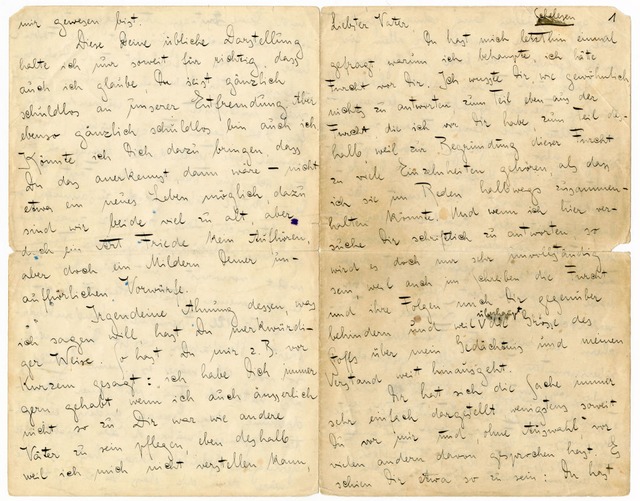 mir gewesen bist.
Diese Deine übliche Darstellung
halte ich nur soweit für richtig dass
auch ich glaube, Du seist gänzlich
schuldlos an unserer Entfremdung. Aber
ebenso gänzlich schuldlos bin auch ich
Könnte ich Dich dazu bringen dass
Du das anerkennst dann wäre – nicht
etwa ein neues Leben möglich dazu
sind wir beide viel zu alt, aber
doch ein Art Friede kein Aufhören,
aber doch ein Mildern Deiner un-
aufhörlichen Vorwürfe.
Irgendeine Ahnung dessen, was
ich sagen will, hast Du merkwürdi-
ger Weise. So hast Du mir z.B. vor
kurzem gesagt: ich habe Dich immer
gern gehabt, wenn ich auch äusserlich
nicht so zu Dir war wie andere
Väter zu sein pflegen, eben deshalb
weil ich mich nicht verstellen kann,
Schelesen 1
Liebster Vater.
Du hast mich letzthin einmal
gefragt warum ich behaupte, ich hätte
Furcht vor Dir. Ich wusste Dir, wie gewöhnlich
nichts zu antworten zum Teil eben aus der
Furcht die ich vor Dir habe zum Teil des-
halb, weil zur Begründung dieser Furcht
zu viele Einzelnheiten gehören, als dass
ich sie im Reden halbwegs zusammen-
halten könnte. Und wenn ich hier ver-
suche Dir schriftlich zu antworten so
wird es doch nur sehr unvollständig
sein weil auch im Schreiben die Furcht
und ihre Folgen mich Dir gegenüber
behindern und weil überhaupt die Grösse des
Stoffs über mein Gedächtnis und meinen
Verstand weit hinausgeht.
Dir hat sich die Sache immer
sehr einfach dargestellt wenigstens soweit
Du vor mir und ohne Auswahl, vor
vielen andern davon gesprochen hast. Es
schien Dir etwa so zu sein: Du hast